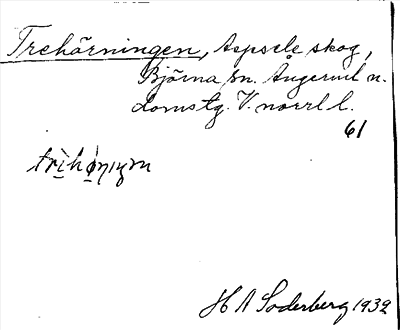 Trehörningen, Aspsele skog,
Björna sn. Ångerml. n.
domstg. V. norrl l.
61
H A Söderberg 1932